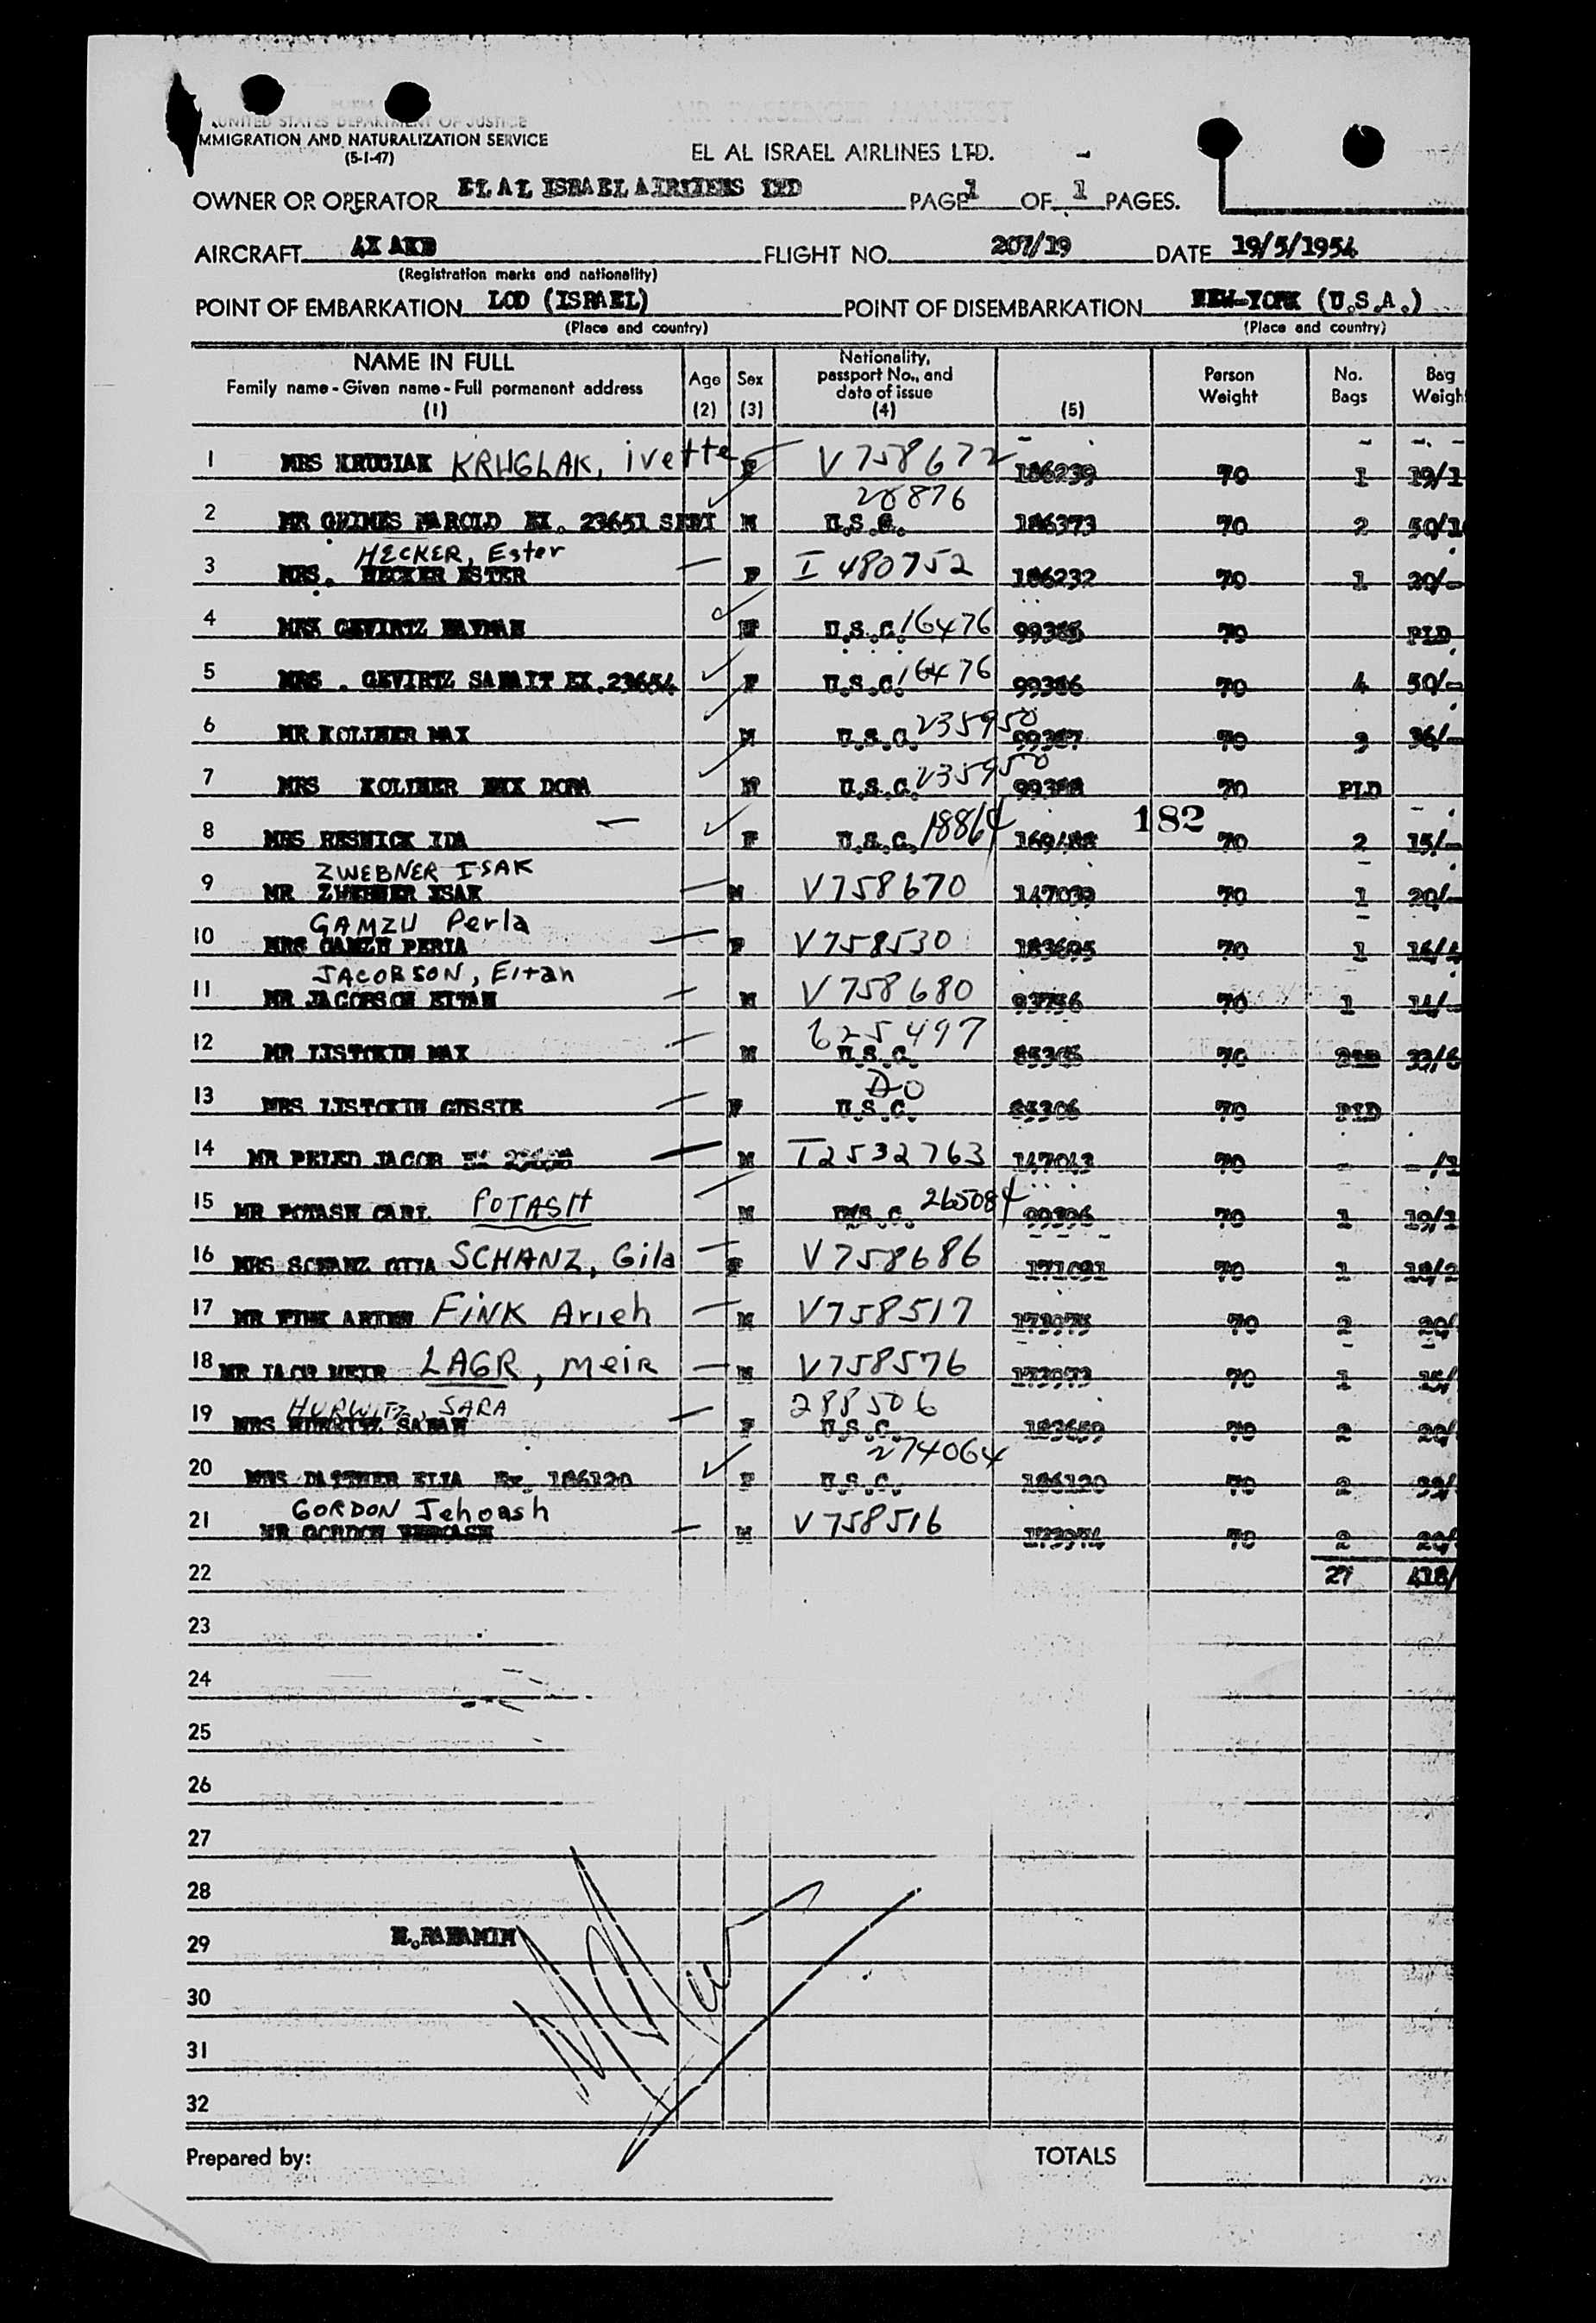 UNITED STATES DEPARTMENT OF JUSTICE
IMMIGRATION AND NATURALIZATION SERVICE
(5-1-47)
EL AL ISRAEL AIRLINES LTD.
OWNER OR OPERATOR EL AL ISRAEL AIRLIERS LTD PAGE 1 OF 1 PAGES.
AIRCRAFT 4X AKB FLIGHT NO. 207/19 DATE 19/5/1954
(Registration marks and nationality)
POINT OF EMBARKATION LOD (ISRAEL) POINT OF DISEMBARKATION NEW-YORK (U.S.A.)
(Place and country) (Place and country)
NAME IN FULL Age Sex Nationality, passport No., and date of issue Person Weight No. Bags Bag Weigh
Family name - Given name - Full permanent address
(1) (2) (3) (4) (5)
1 MRS KRUGIAK KRUGLAK, ivette F V758672 186239 70 1 19/1
28876
2 MR GRIMES HAROLD EX. 23651 M U.S.C. 186373 70 2 50/
HECKER, Ester
3 MRS. HECKER ESTER F I 480752 186232 70 1 20/-
4 GEVIRTZ HAYMAN U.S.C. 16476 99385 70 PLD
5 MRS. GEVIRTZ EX. 23654 F U.S.C. 16476 99386 70 4 50/-
6 MR KOLINER MAX M U.S.C. 235950 99387 70 3 36/-
7 MRS KOLINER DORA U.S.C. 235950 99388 70 PLD
182
8 MRS RESNICK IDA F U.S.C. 18864 70 2 15/-
ZWEBNER ISAK
9 MR ZWEBNER ISAK M V758670 147039 70 1 20/-
GAMZU Perla
10 MRS GAMZU PERLA F V758530 183695 70 1
JACOBSON, Eitan
11 MR JACOBSON EITAN M V758680 93756 70 1 14/-
625497
12 MR LISTOKIN MAX M U.S.C. 85305 70 33/6
Do
13 MRS LISTOKIN GUSSIE F U.S.C. 85306 70 PLD
14 MR PELED JACOB M I2532763 147043 70 -
15 MR POTASH CARL POTASH M 265084 99396 70 1 19/1
16 MRS SCHANZ GILA SCHANZ, Gila F V758686 171091 70 1 18/2
17 MR FINK ARIEH FINK Arieh M V758517 173975 70 2 20/
18 MR LAGR MEIR LAGR, Meir M V758576 173973 70 1 15/
HURWITZ, SARA 288506
19 MRS HURWITZ SARAH F U.S.C. 183659 70 2 20/
274064
20 MRS ELLA Ex. 186120 F U.S.C. 186120 70 2 39/
GORDON Jehoash
21 MR GORDON M V758516 173974 70 2 20/
22 27 418/
23
24
25
26
27
28
29
30
31
32
Prepared by: TOTALS